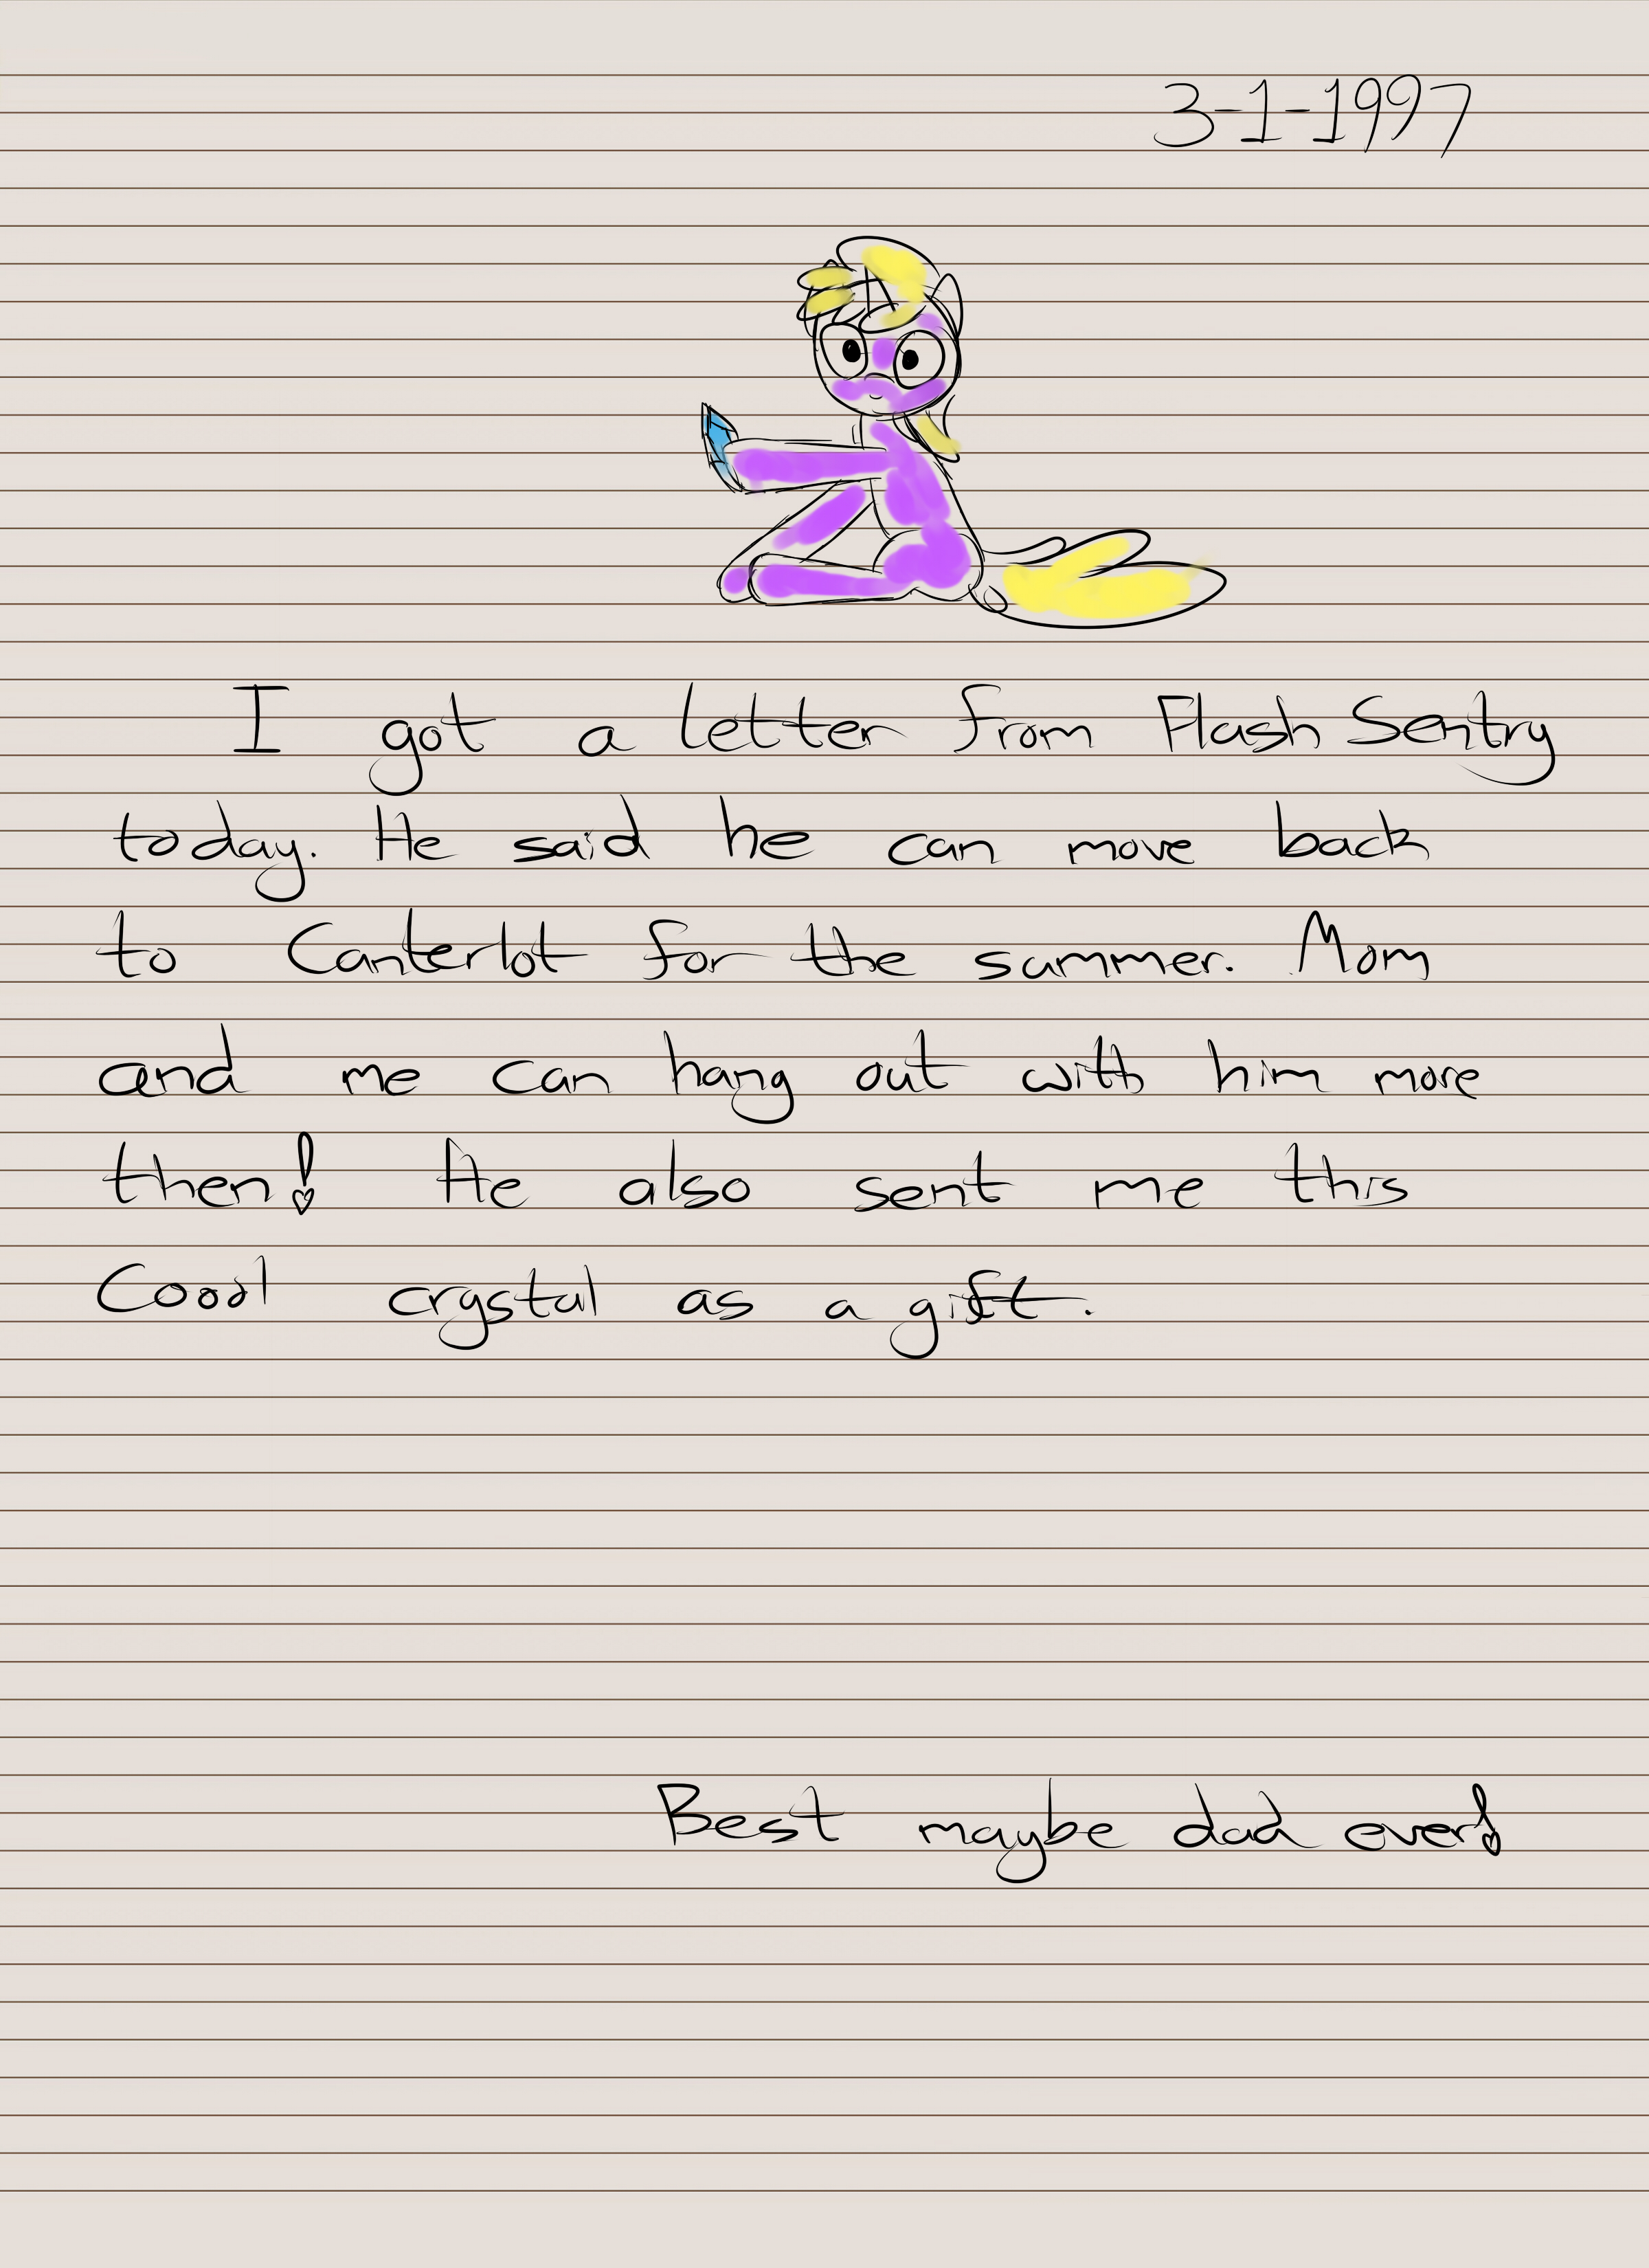 3-1-1997
I got a letter from Flash Sentry
today. He said he can move back
to Canterlot for the summer. Mom
and me can hang out with him more
then! He also sent me this
Cool crystal as a gift.
Best maybe dad ever!